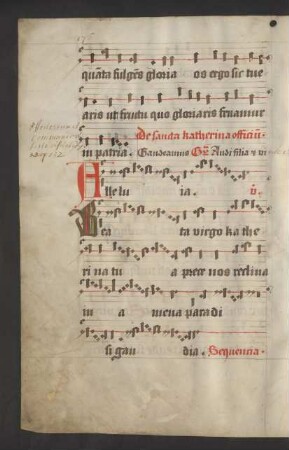 quāta fulgēs gloria os ergo sic tue
aris ut fructu quo gloriaris fruamur
De sancta katherina officiū.
in patria. Gaudeamus Audi filia
Alleluia. v.
Beata virgo kathe
rina tua prece nos reclina
in amena paradi
si gaudia. Sequencia.